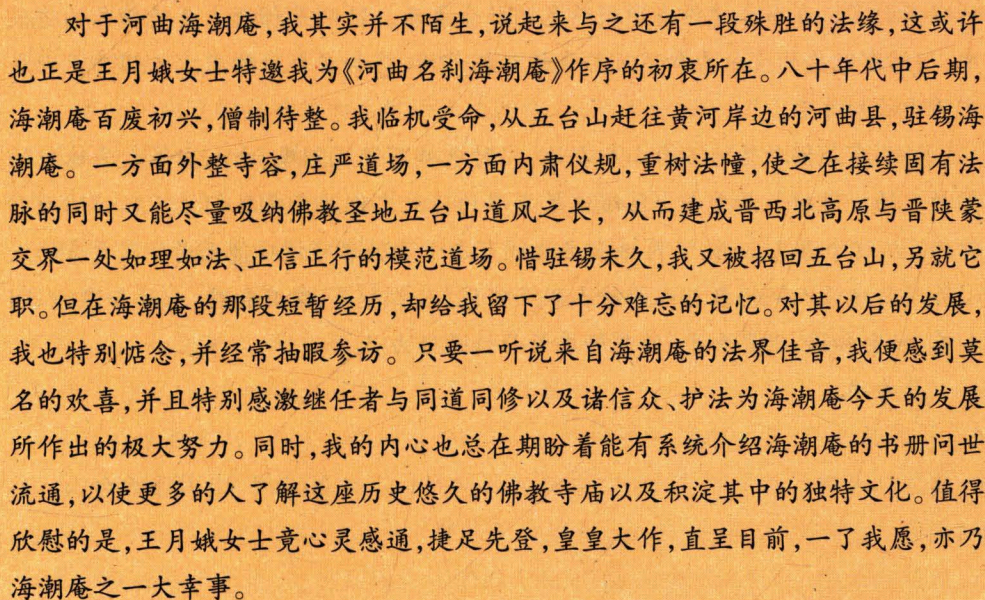 对于河曲海潮庵,我其实并不陌生,说起来与之还有一段殊胜的法缘,这或许
也正是王月娥女士特邀我为《河曲名刹海潮庵》作序的初衷所在。八十年代中后期,
海潮庵百废初兴,僧制待整。我临机受命,从五台山赶往黄河岸边的河曲县,驻锡海
潮庵。一方面外整寺容,庄严道场,一方面内肃仪规,重树法幢,使之在接续固有法
脉的同时又能尽量吸纳佛教圣地五台山道风之长,从而建成晋西北高原与晋陕蒙
交界一处如理如法、正信正行的模范道场。惜驻锡未久,我又被招回五台山,另就它
职。但在海潮庵的那段短暂经历,却给我留下了十分难忘的记忆。对其以后的发展,
我也特别惦念,并经常抽暇参访。只要一听说来自海潮庵的法界佳音,我便感到莫
名的欢喜,并且特别感激继任者与同道同修以及诸信众、护法为海潮庵今天的发展
所作出的极大努力。同时,我的内心也总在期盼着能有系统介绍海潮庵的书册问世
流通,以使更多的人了解这座历史悠久的佛教寺庙以及积淀其中的独特文化。值得
欣慰的是,王月娥女士竟心灵感通,捷足先登,皇皇大作,直呈目前,一了我愿,亦乃
海潮庵之一大幸事。